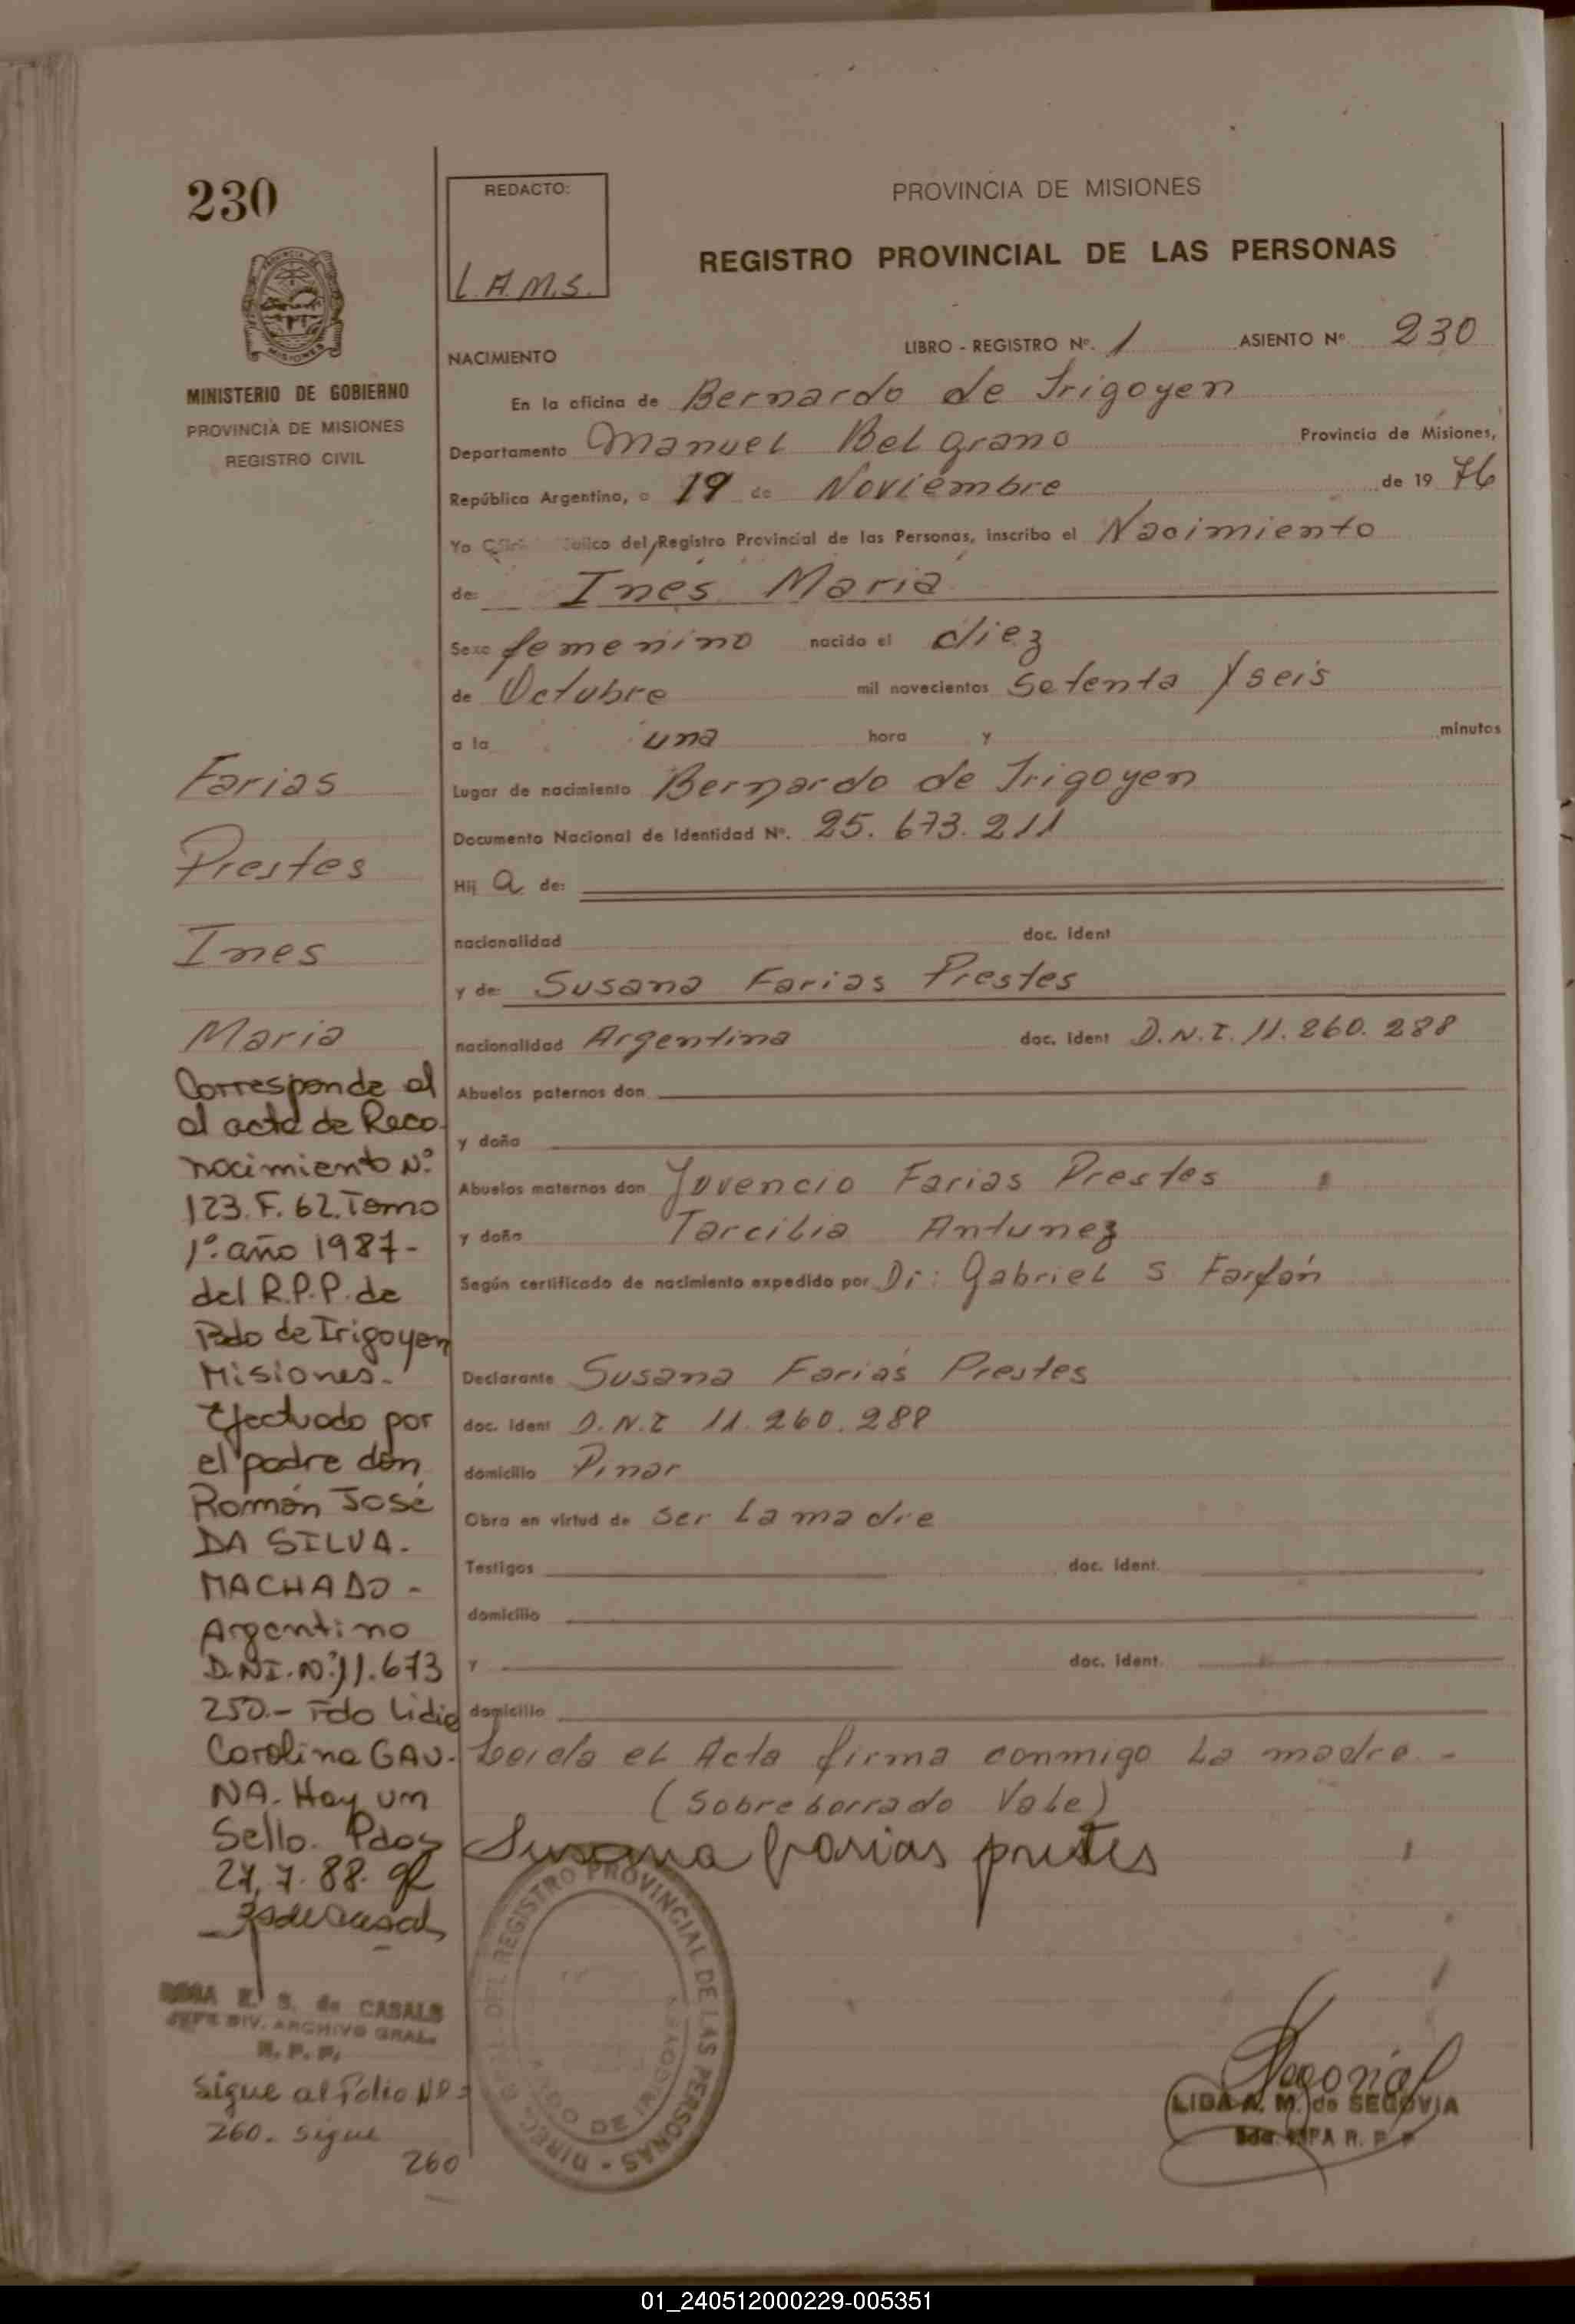 230
REDACTO:
L.A.M.S.
PROVINCIA DE MISIONES
REGISTRO PROVINCIAL DE LAS PERSONAS
MINISTERIO DE GOBIERNO
PROVINCIA DE MISIONES
REGISTRO CIVIL
NACIMIENTO
LIBRO - REGISTRO Nº. 1 ASIENTO Nº 230
En la oficina de Bernardo de Irigoyen
Departamento Manuel Belgrano Provincia de Misiones,
República Argentina, a 19 de Noviembre de 19 76
Yo del Registro Provincial de las Personas, inscribo el Nacimiento
de: Inés María
Sexo femenino nacido el diez
de Octubre mil novecientos Setenta y seis
a la una hora y minutos
Lugar de nacimiento Bernardo de Irigoyen
Documento Nacional de Identidad Nº. 25.673.211
Hij a de:
nacionalidad doc. ident
y de Susana Farias Prestes
nacionalidad Argentina doc. ident D.N.I. 11.260.288
Abuelos paternos don
y doña
Abuelos maternos don Jovencio Farias Prestes
y doña Tarcilia Antunez
Según certificado de nacimiento expedido por Dr: Gabriel S. Farfán
Declarante Susana Farias Prestes
doc. ident D.N.I 11.260.288
domicilio Pinar
Obra en virtud de ser La madre
Testigos doc. ident.
domicilio
y doc. ident.
domicilio
Leida el Acta firma conmigo La madre.-
(Sobreborrado Vale)
Susana farias prestes
Farias
Prestes
Ines
Maria
Corresponde al
al acta de Reco-
nocimiento Nº
123. F. 62. Tomo
1º. año 1987-
del R.P.P. de
Bdo de Irigoyen
Misiones.-
Efectuado por
el padre don
Román José
DA SILVA.
MACHADO -
Argentino
D.N.I. Nº 11.673
250.- Fdo Lidia
Carolina GAU-
NA. Hay um
Sello. Pdas
27.7.88.
ROSA E. S. de CASALS
JEFE DIV. ARCHIVO GRAL.
R. P. P.
Sigue al Folio Nº
260. Sigue
260
DIREC. GRAL. DEL REGISTRO PROVINCIAL DE LAS PERSONAS
BERNARDO DE IRIGOYEN
LIDA A. M. de SEGOVIA
R. P. P
01_240512000229-005351